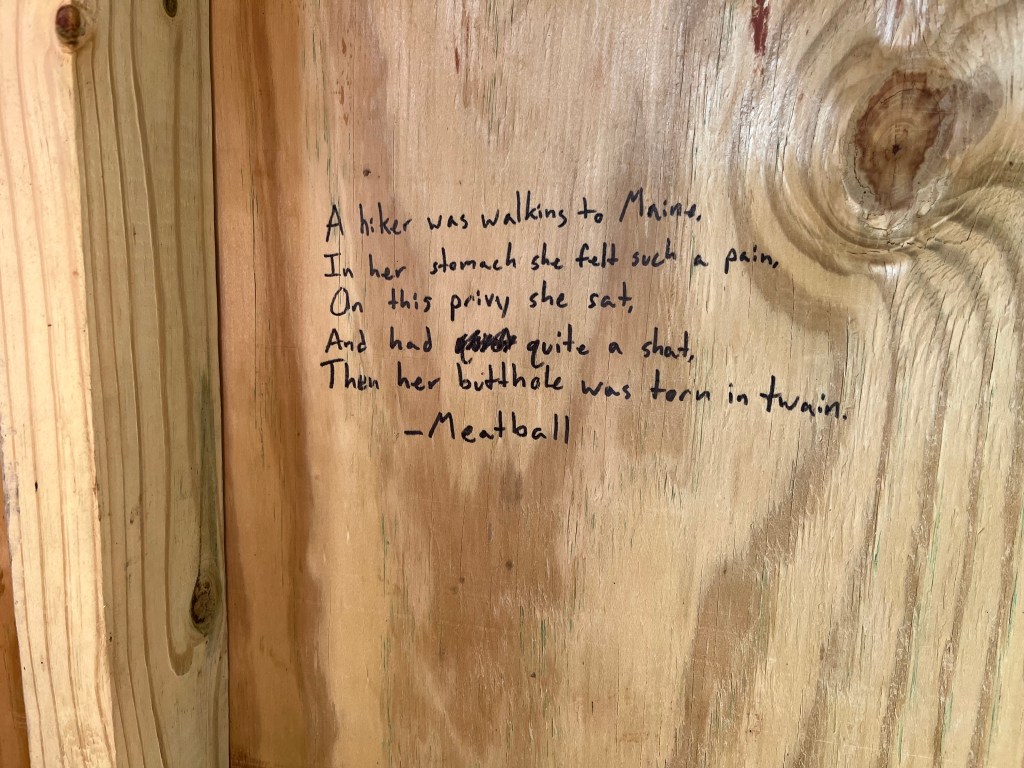 A hiker was walking to Maine,
In her stomach she felt such a pain,
On this privy she sat,
And had quite a shat,
Then her butthole was torn in twain.
-Meatball